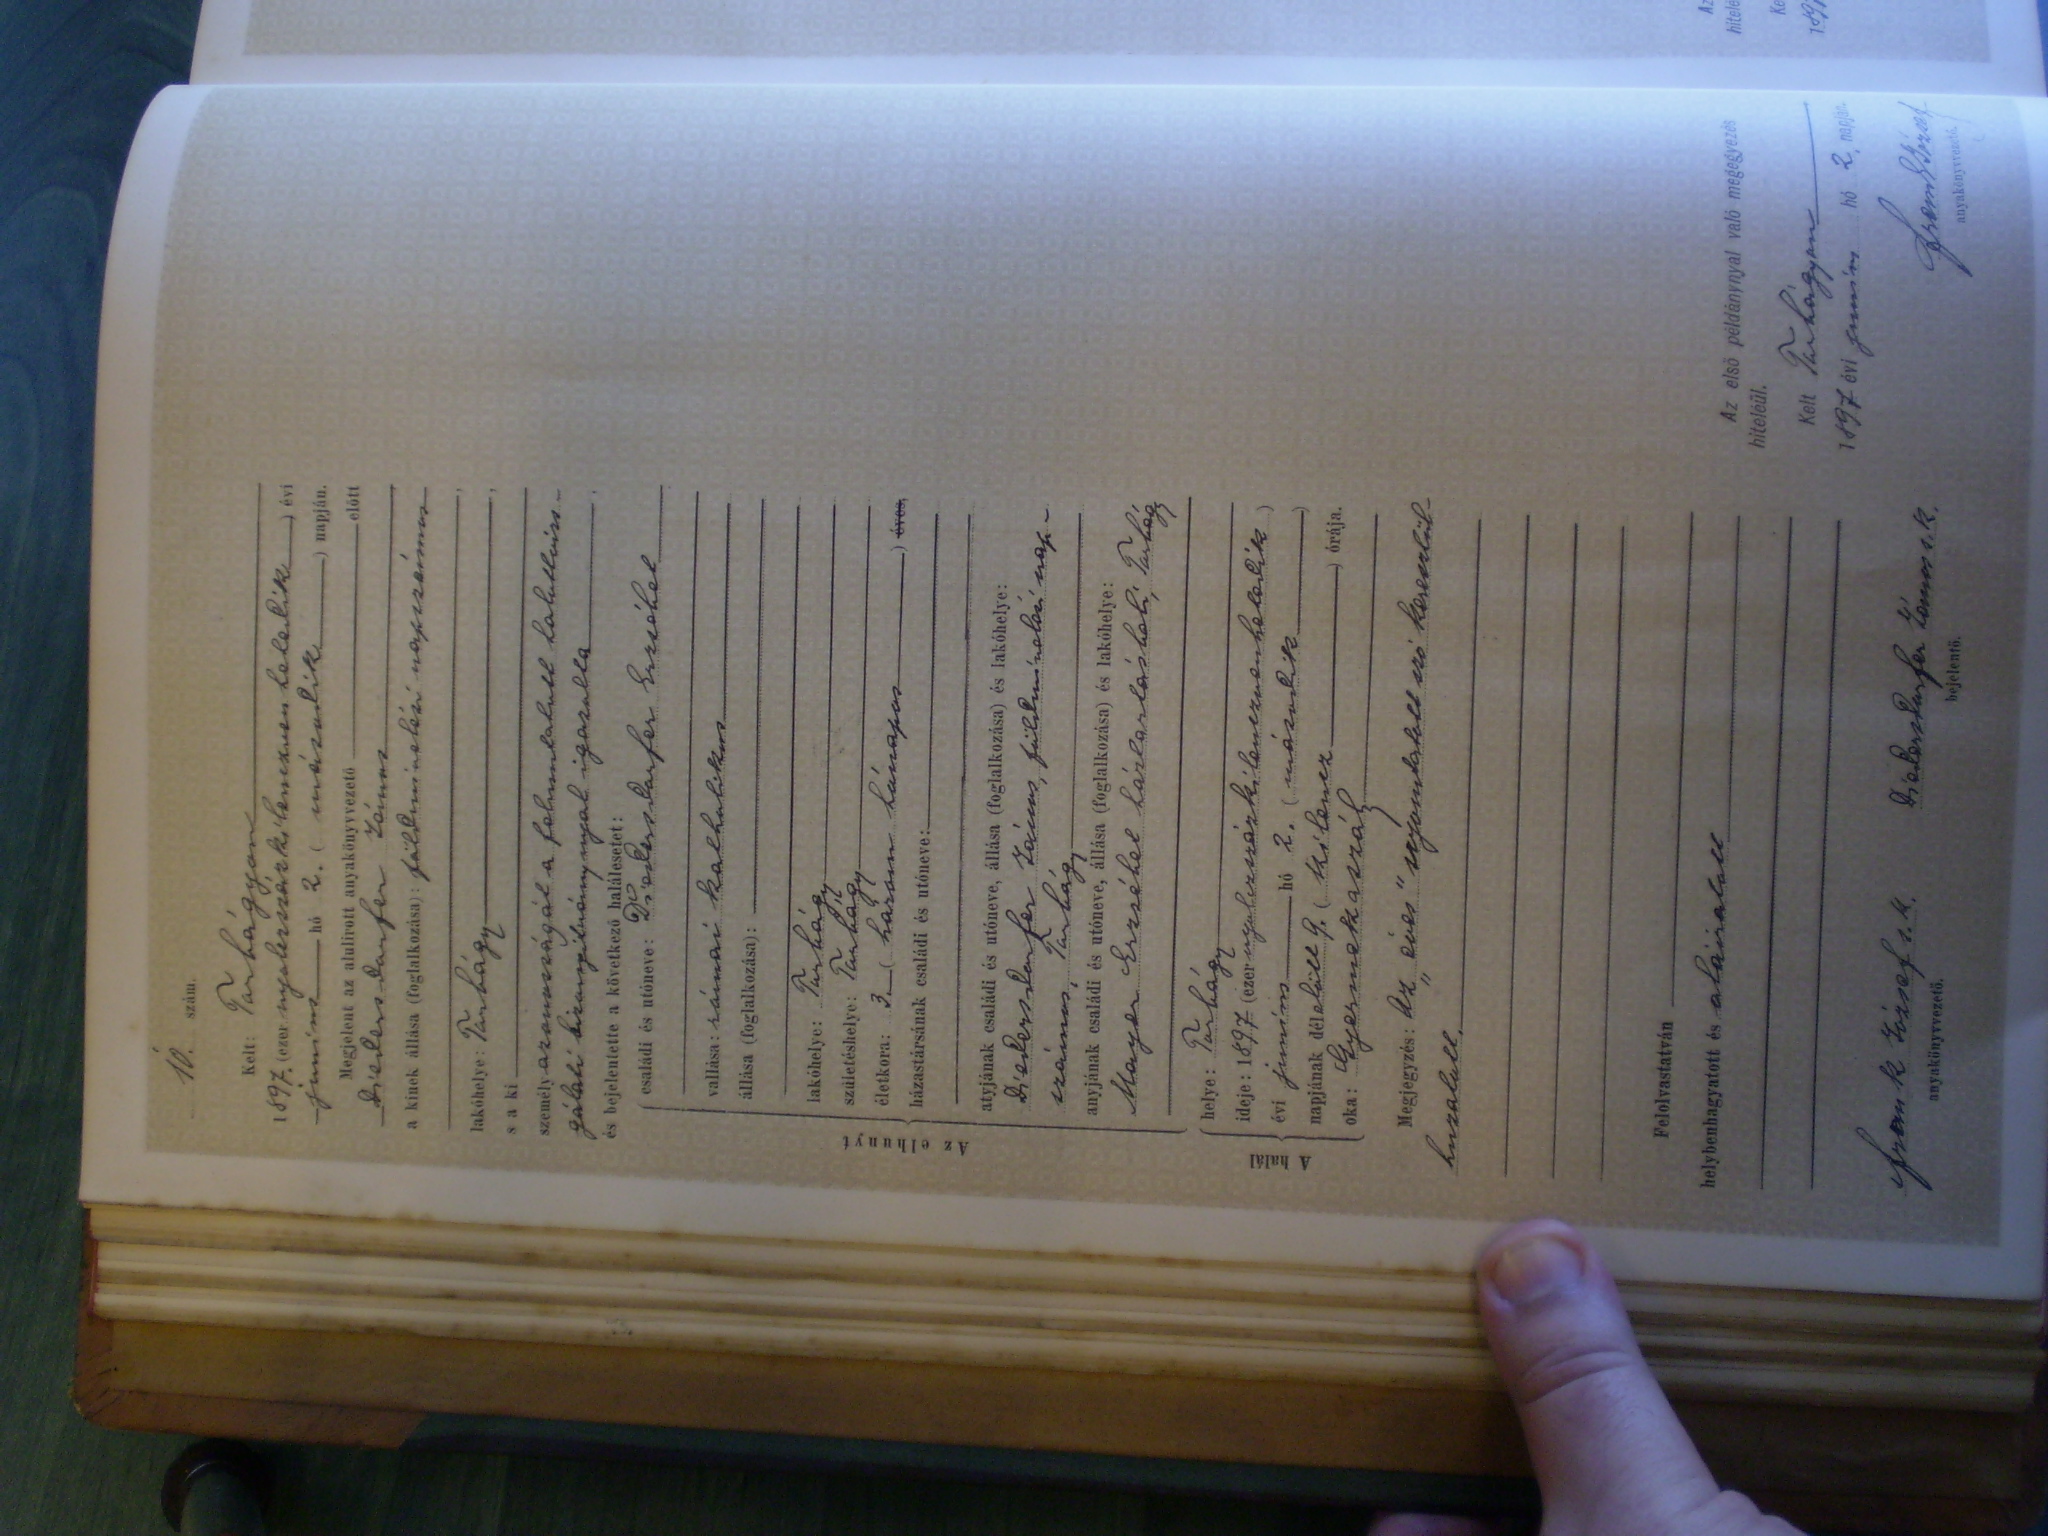 10. szám.
Kelt: Tarhágyon
1897. (ezer nyolczszázkilenczvenhetedik) évi
június hó 2. (második) napján.
Megjelent az alulirott anyakönyvvezető előtt
Diedersdorfer János
a kinek állása (foglalkozása): földmivelési napszámos
lakóhelye: Tarhágy,
s a ki,
személyazonosságát a felmutatott
gálati bizonyítványnyal igazolta,
és bejelentette a következő halálesetet:
Az elhunyt
családi és utóneve: Diedersdorfer Erzsébet
vallása: római katholikus
állása (foglalkozása):
lakóhelye: Tarhágy
születéshelye: Tarhágy
életkora: 3. (három hónapos) éves,
házastársának családi és utóneve:
atyjának családi és utóneve, állása (foglalkozása) és lakóhelye:
Diedersdorfer János, földmivelési nap-
számos, Tarhágy
anyjának családi és utóneve, állása (foglalkozása) és lakóhelye:
Mayer Erzsébet háztartásbeli, Tarhágy
A halál
helye: Tarhágy
ideje: 1897 (ezer nyolczszázkilenczvenhetedik)
évi június hó 2. (második)
napjának délelőtt 9. (kilencz) órája.
oka: Gyermekaszály
Megjegyzés: Az "éves" nyomtatott szó keresztül
huzatott.
Felolvastatván
helybenhagyatott és aláiratott
Frank József s. k.
anyakönyvvezető.
Diedersdorfer János s. k.
bejelentő.
Az első példánynyal való megegyezés
hiteléül.
Kelt Tarhágyon
1897 évi június hó 2. napján.
Frank József
anyakönyvvezető.
Az
hitelé
Ke
189